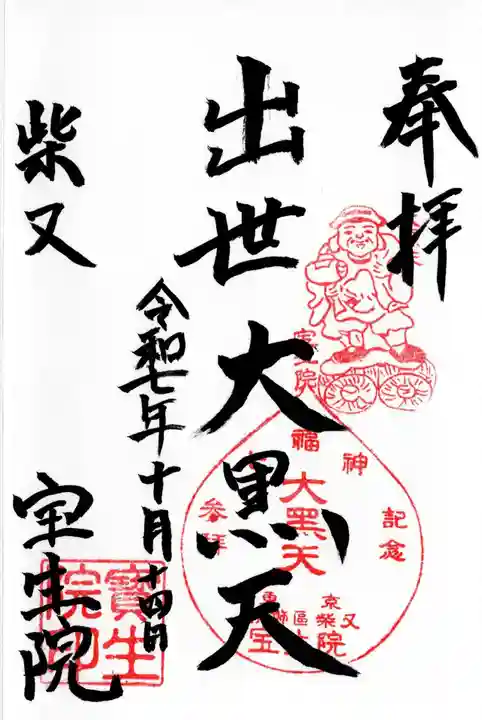 奉拝
出世大黒天
令和七年十月十四日
柴又
宝生院
宝生院
福神
参拝
記念
大黑天
京
区
柴又
院
寶生院印